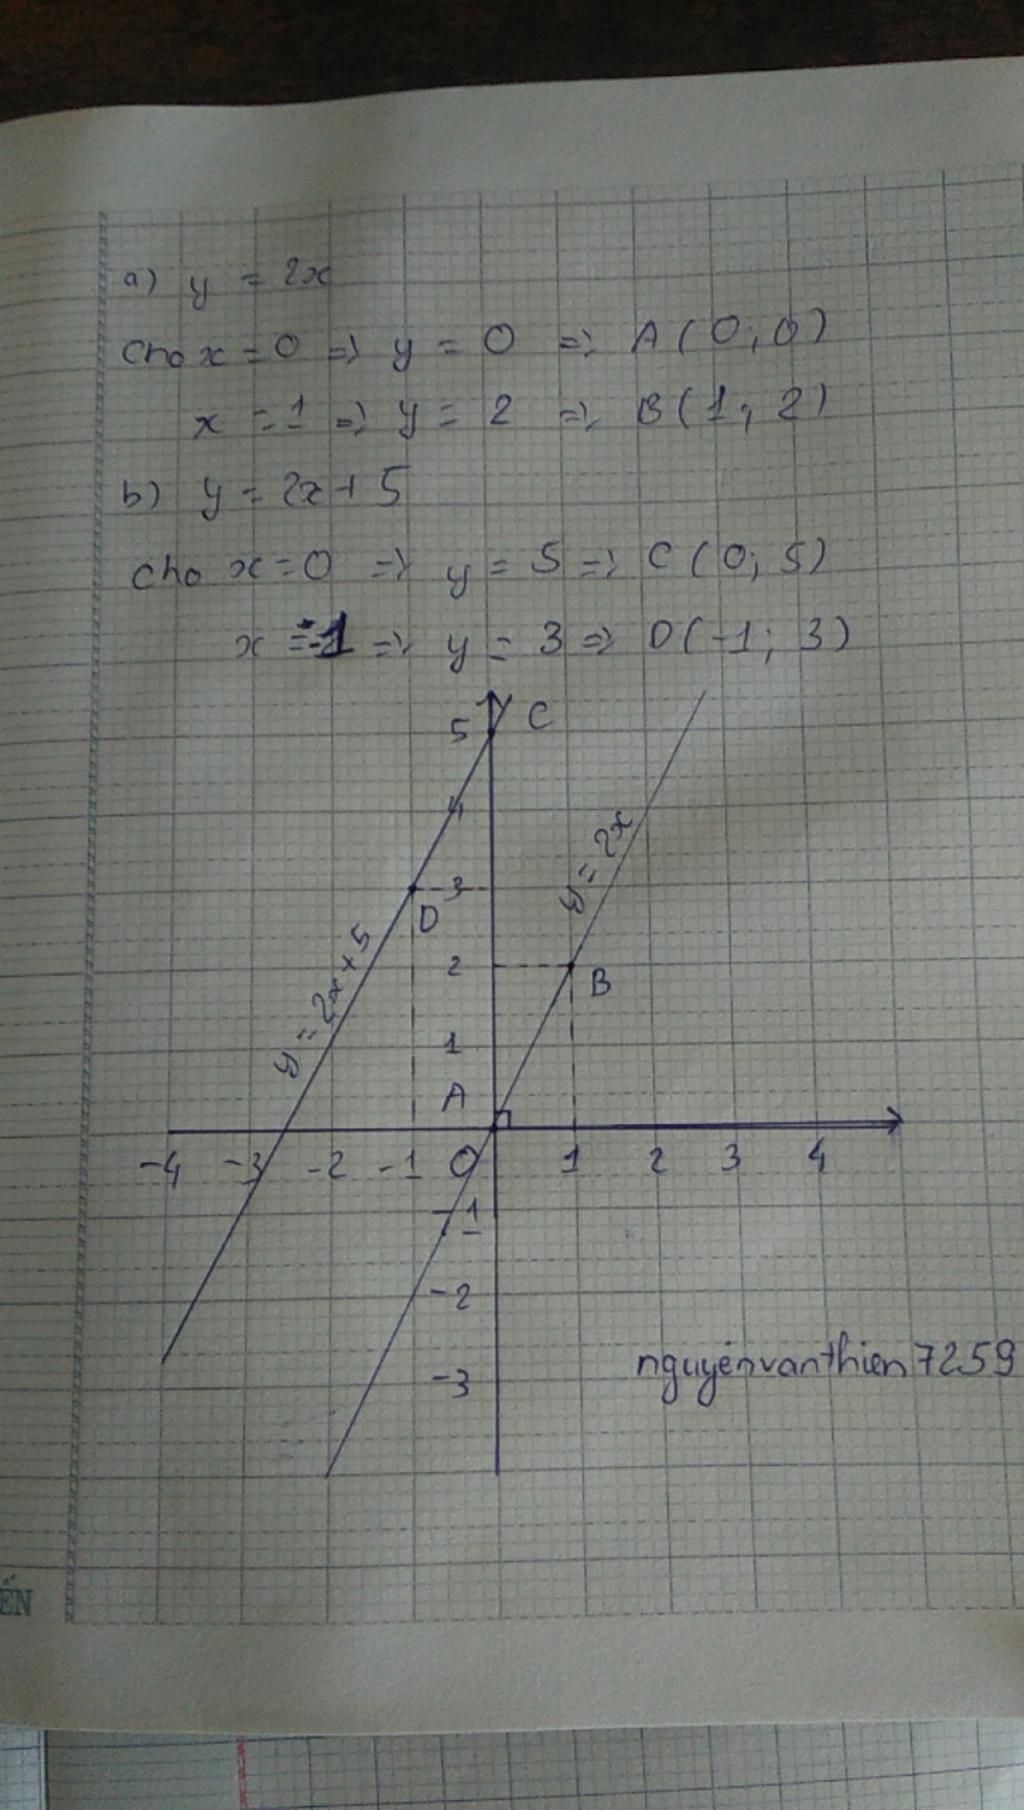 a) y = 2x
Cho x = 0 => y = 0 => A(0; 0)
x = 1 => y = 2 => B(1; 2)
b) y = 2x + 5
cho x = 0 => y = 5 => C(0; 5)
x = -1 => y = 3 => D(-1; 3)
5 C
4
y = 2x
3
D
y = 2x + 5
2
B
1
A
-4 -3 -2 -1 O 1 2 3 4
-1
-2
nguyễnvanthien7259
-3
ẾN